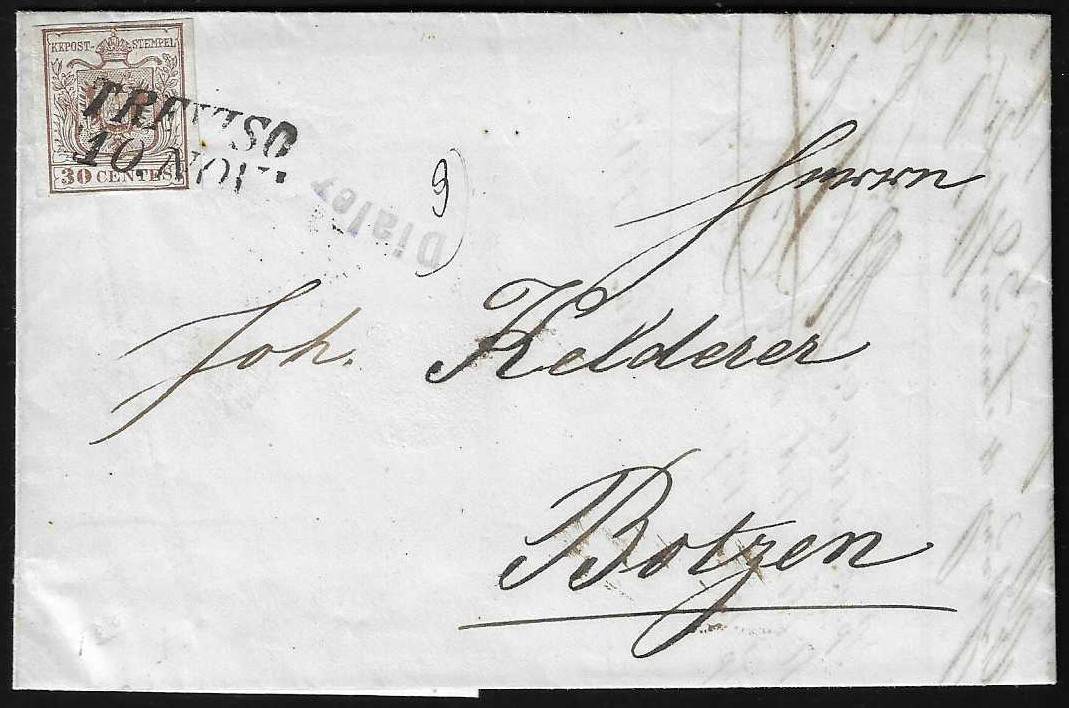 KKPOST-STEMPEL
TREVISO
10. NOV.
30 CENTES.
9
Dialer
Herrn
Joh. Kelderer
Botzen